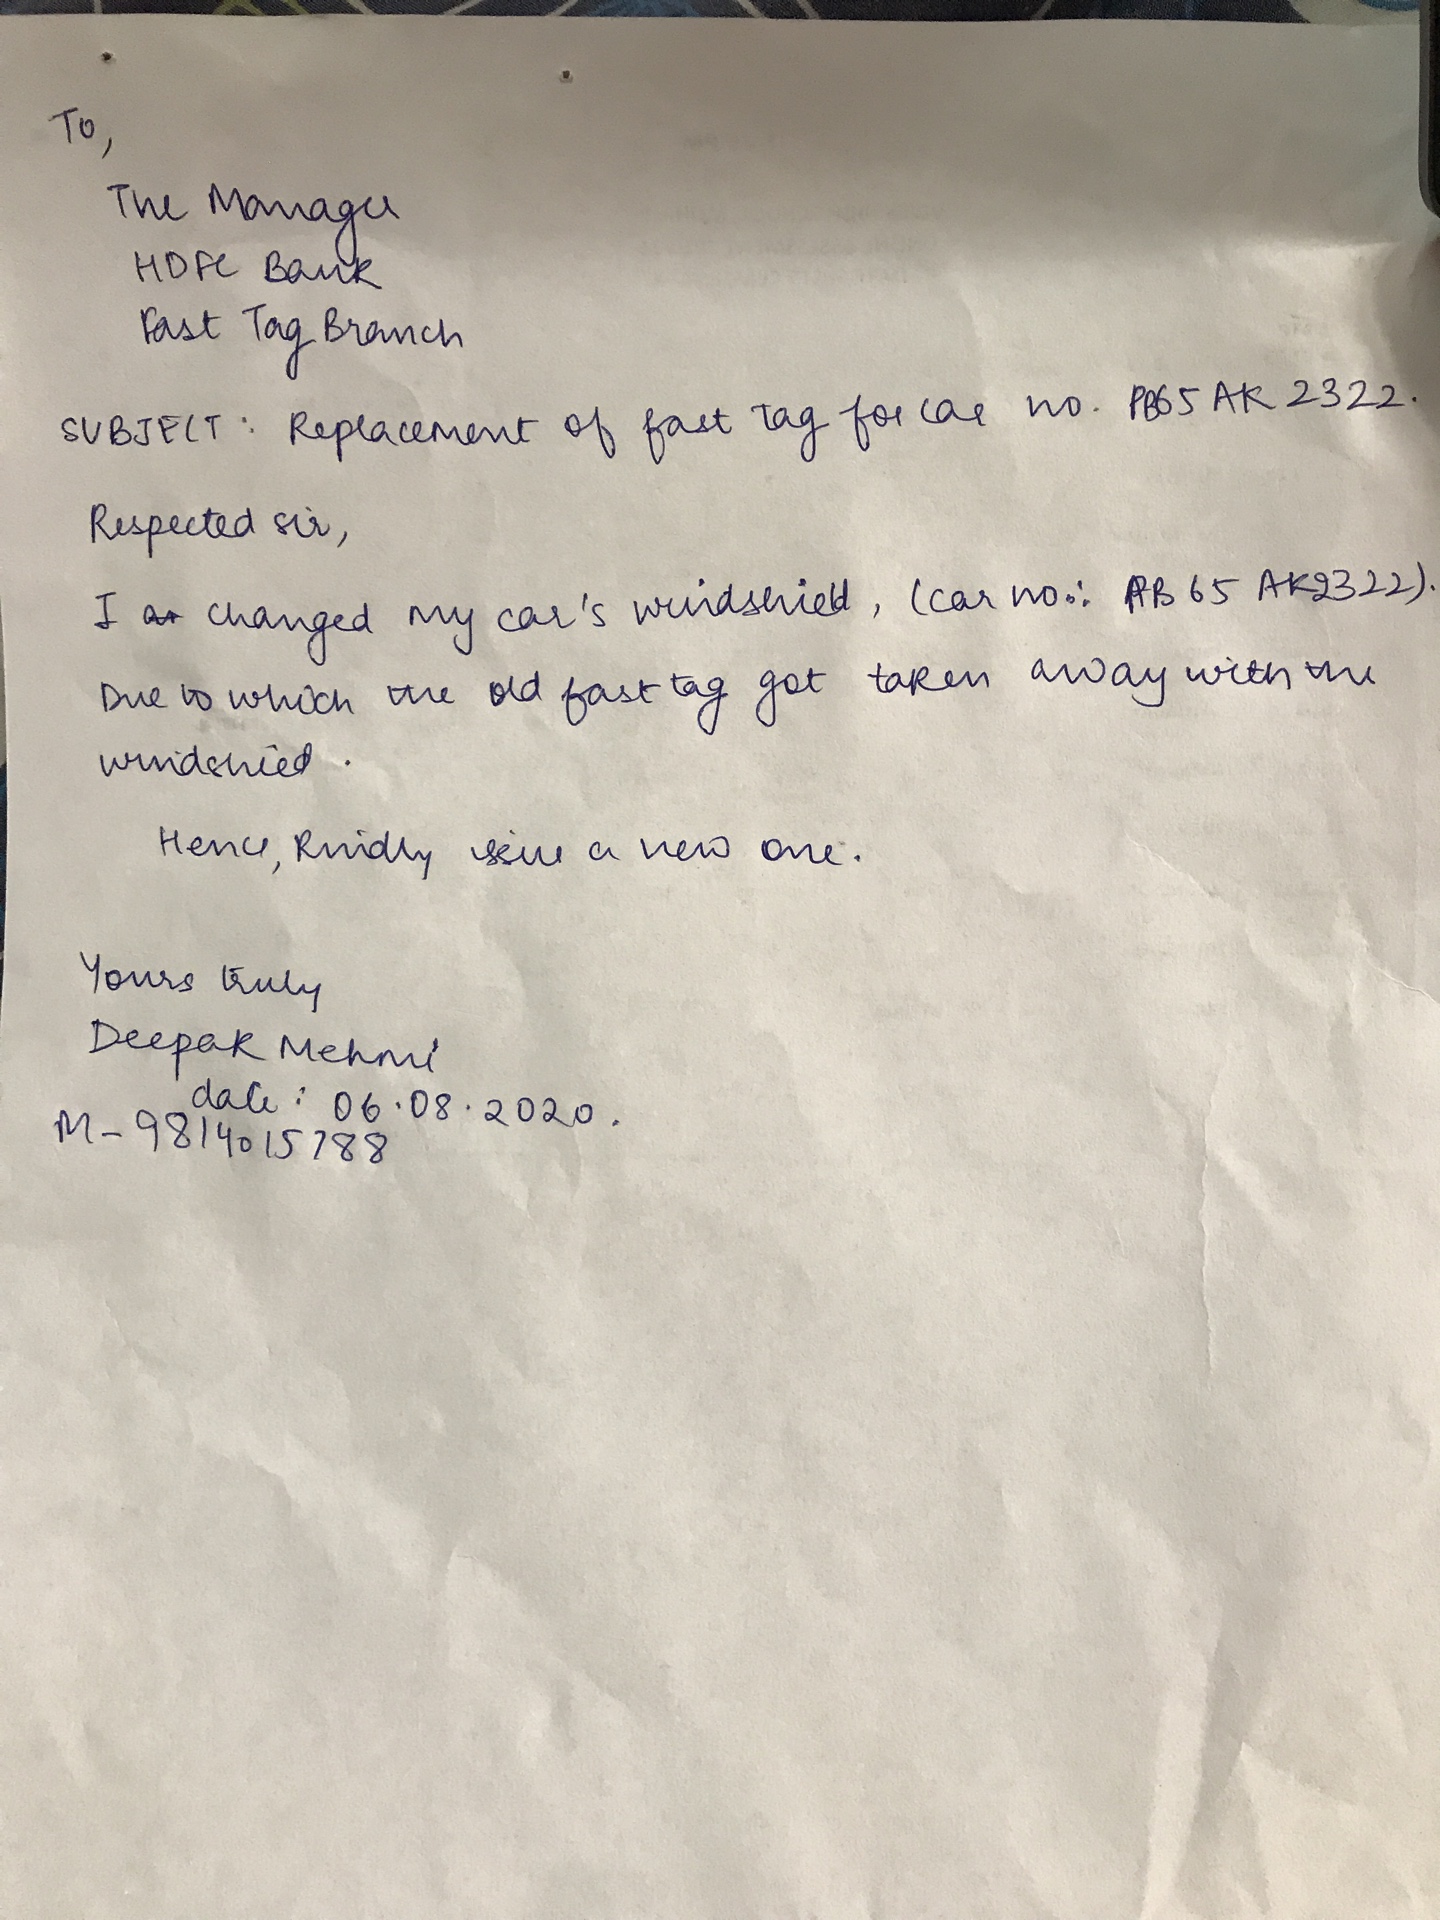 To,
The Manager
HDFC Bank
Fast Tag Branch
SUBJECT: Replacement of fast tag for car no. PB65 AK 2322.
Respected sir,
I changed my car's windshield, (car no.: PB 65 AK2322).
Due to which the old fast tag got taken away with the
windshied.
Hence, kindly issue a new one.
Yours truly
Deepak Mehmi
date: 06.08.2020.
M-9814015788